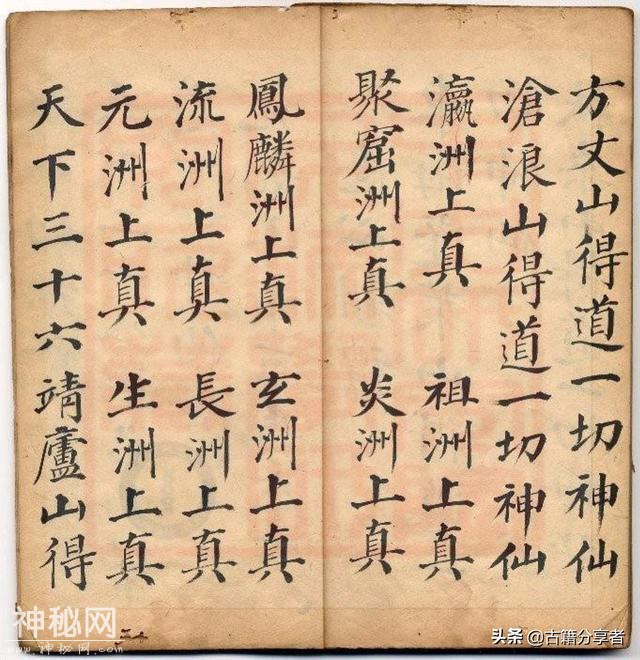 方丈山得道一切神仙
滄浪山得道一切神仙
瀛洲上真 祖洲上真
聚窟洲上真 炎洲上真
鳳麟洲上真 玄洲上真
流洲上真 長洲上真
元洲上真 生洲上真
天下三十六靖廬山得
神秘网
www.神秘网.com
头条 @古籍分享者